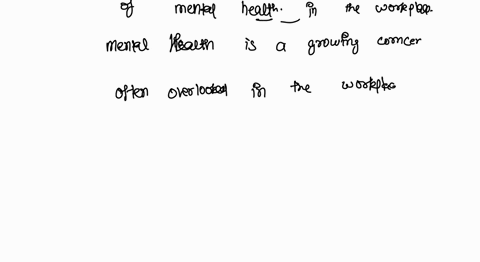 of mental health. in the workplace.
mental Health is a growing concer
often overlooked in the workplace